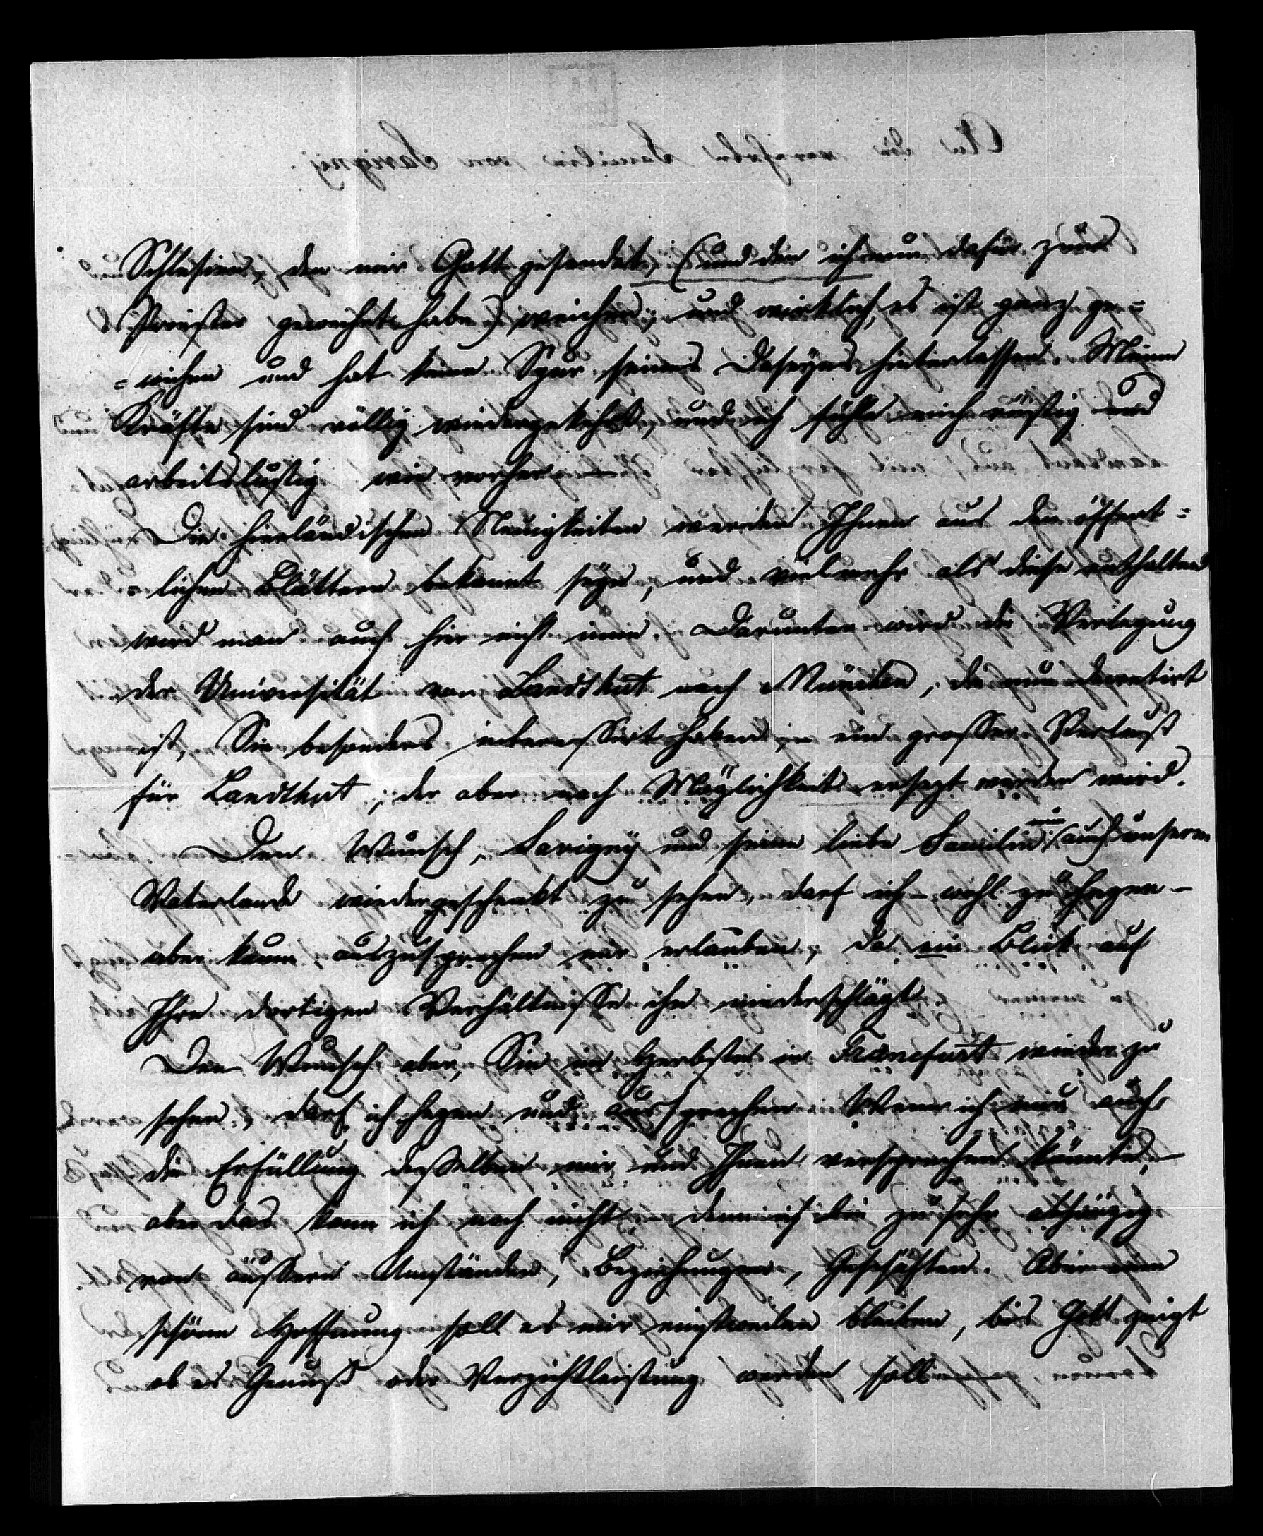 Schlesien, den mir Gott gesendet, (und den ich nun dafür zum
Priester geweihet habe) weichen; und wirklich, es ist ganz ge=
=wichen und hat keine Spur seines Daseyns hinterlassen. Meine
Kräfte sind völlig wiedergekehrt, und ich fühle mich rüstig und
arbeitslustig wie vorher. —
Die hierländischen Neuigkeiten werden Ihnen aus den öffent=
lichen Blättern bekannt seyn, und vielmehr als diese enthalten
wird man auch hier nicht inne. Darunter wird die Verlegung
der Universität von Landshut nach München, die nun decretirt
ist, Sie besonders interessirt haben, ein grosser Verlust
für Landshut, der aber nach Möglichkeit ersezt werden wird.
Den Wunsch, Savigny und seine liebe Familie auch unserm
Vaterlande wiedergeschenkt zu sehen, darf ich wohl zu hegen —
aber kaum auszusprechen mir erlauben, da ein Blick auf
Ihre dortigen Verhältnisse ihn niederschlägt.
Den Wunsch aber, Sie im Herbste in Francfurt wieder zu
sehen, darf ich hegen und aussprechen. Wenn ich nur auch
die Erfüllung desselben mir und Ihnen versprechen könnte, —
aber das kann ich noch nicht, denn ich bin zu sehr abhängig
von äussern Umständen, Beziehungen, Geschäften. Aber eine
schöne Hoffnung soll es mir einstweilen bleiben, bis Gott zeigt
ob es Genuß oder Verzichtleistung werden soll.
An die verehrte Familie von Savigny.